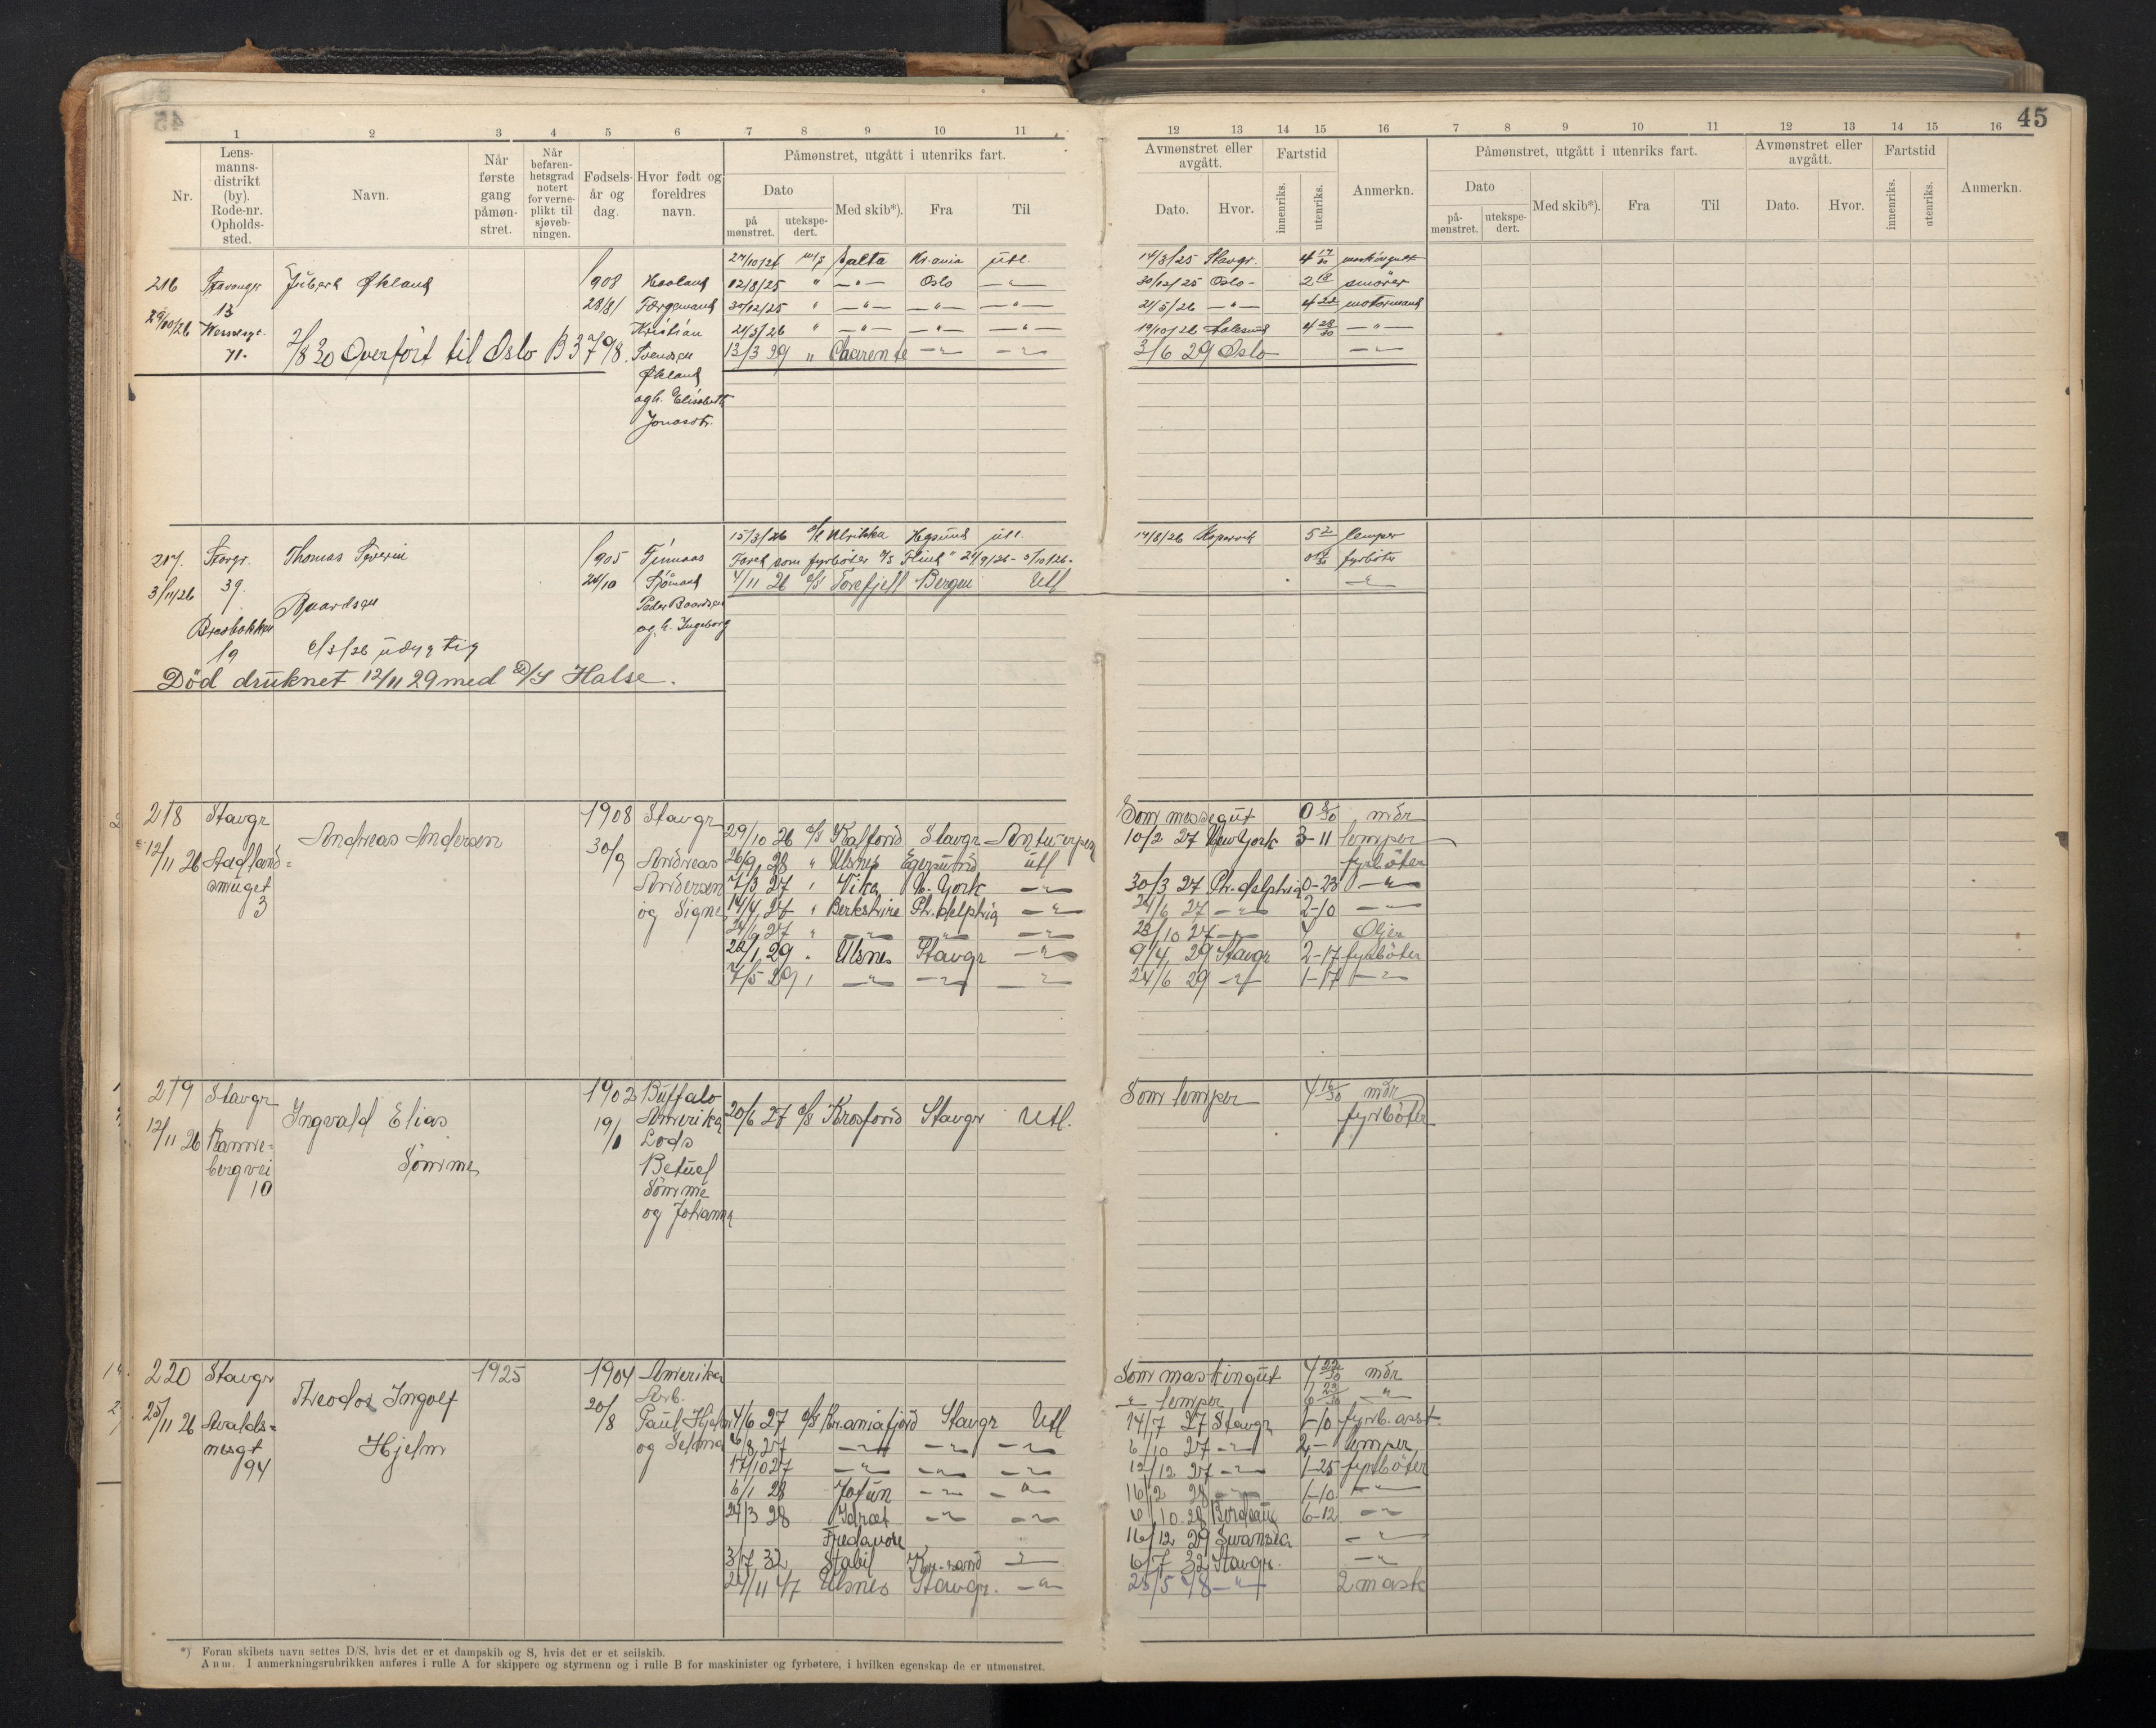 45
1 2 3 4 5 6 7 8 9 10 11
Nr.
Lens-
manns-
distrikt
(by).
Rode-nr.
Opholds-
sted.
Navn.
Når
første
gang
påmøn-
stret.
Når
befaren-
hetsgrad
notert
for verne-
plikt til
sjøveb-
ningen.
Fødsels-
år og
dag.
Hvor født og
foreldres
navn.
Påmønstret, utgått i utenriks fart.
Dato
på
mønstret.
utekspe-
dert.
Med skib*).
Fra
Til
12 13 14 15 16 7 8 9 10 11 12 13 14 15 16
Avmønstret eller
avgått.
Dato.
Hvor.
Fartstid
innenriks.
utenriks.
Anmerkn.
Påmønstret, utgått i utenriks fart.
Dato
på-
mønstret.
utekspe-
dert.
Med skib*).
Fra
Til
Avmønstret eller
avgått.
Dato.
Hvor.
Fartstid
innenriks.
utenriks.
Anmerkn.
216 Stavanger
13
29/10/26
71.
Økland
1908
28/8
Kristian
Svendsen
Økland
og h. Elisabeth
2/8 30 Overført til Oslo B 3798.
Kr.ania utl.
12/8/25 " -"- Oslo -"-
30/12/25 " -"- -"- -"-
" -"- -"- -"-
13/3 29 " Charente -"- -"-
14/3/25 Stavgr.
30/12/25 Oslo - 2 18 smører
21/5/26 -"- 4 22 motormand
19/10/26 Aalesund -"-
3/6 29 Oslo -"-
217. Stavgr.
39.
3/11/26
19
Thomas Severin
Baardsen
1905
Sjømand
Peder Baardsen
og h. Ingeborg
Død druknet 12/11 29 med D/S Halse.
15/3/26 Ulrikka Hgsund utl.
Faret som fyrbøter
4/11 26 D/S Torefjell Bergen Utl
14/8/26 Kopervik 5 2 lemper
fyrbøter
-"-
218 Stavgr
12/11 26
smuget
3
Andreas Andersen
1908
30/9
Stavgr
Andreas
Andersen
og Signe
29/10 26 D/S Kalfond Stavgr Antwerpen
26/9 28 " Ulsnes Egersund utl
7/3 27 " Vika N. York -"-
14/4 27 " Berkshire Ph.delphia -"-
24/6 27 " -"- -"- -"-
22/1 29 " Ulsnes Stavgr -"-
7/5 29 " -"- -"- -"-
Som messegut mdr
10/2 27 New York 3-11 lemper
fyrbøter
30/3 27 Ph.delphia 0-23 -"-
24/6 27 -"- 2-10 -"-
23/10 27 -"- 4 Oljer
9/4 29 Stavgr 2-17 fyrbøter
24/6 29 -"- 1-17 -"-
219 Stavgr
12/11 26 Ramne-
bergvei
10
Ingvald Elias
Sømme
1902
19/1
Buffalo
Amerika
Lods
Betuel
Sømme
og Johanna
20/6 27 D/S Krosfond Stavgr Utl.
Som lemper 4 16/30 mdr
fyrbøter
220 Stavgr
25/11 26 Avalds-
nesgt
94
Theodor Ingolf
Hjelm
1925
1904
20/8
Amerika
Arb.
Paul Hjelm
og Selma
4/6 27 D/S Kr.aniafjord Stavgr Utl
6/8 27 -"- -"- -"-
17/10 27 -"- -"- -"-
6/1 28 Jotun -"- -"-
24/3 28 Idræt -"- -"-
Fredavore
3/7 32 Stabil Kr.sand -"-
24/11 47 Ulsnes Stavgr. -"-
Som maskingut 4 22/30 mdr
" lemper -"-
14/7 27 Stavgr 1-10 fyrb. asst.
6/10 27 -"- 2- lemper
12/12 27 -"- 1-25 fyrbøter
16/2 28 -"- 1-10 -"-
10 28 Bordeaux 6-12 -"-
16/12 29 Swansea -"-
6/7 32 Stavgr. -"-
28/5 48 -"- 2 mask
*) Foran skibets navn settes D/S, hvis det er et dampskib og S, hvis det er et seilskib.
Anm. I anmerkningsrubrikken anføres i rulle A for skippere og styrmenn og i rulle B for maskinister og fyrbøtere, i hvilken egenskap de er utmønstret.